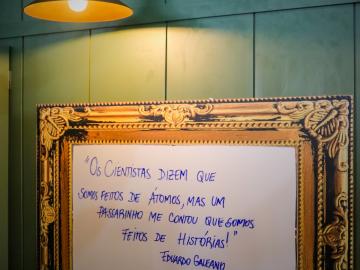 "OS CIENTISTAS DIZEM QUE
SOMOS FEITOS DE ÁTOMOS, MAS UM
PASSARINHO ME CONTOU QUE SOMOS
FEITOS DE HISTÓRIAS!"
EDUARDO GALEANO